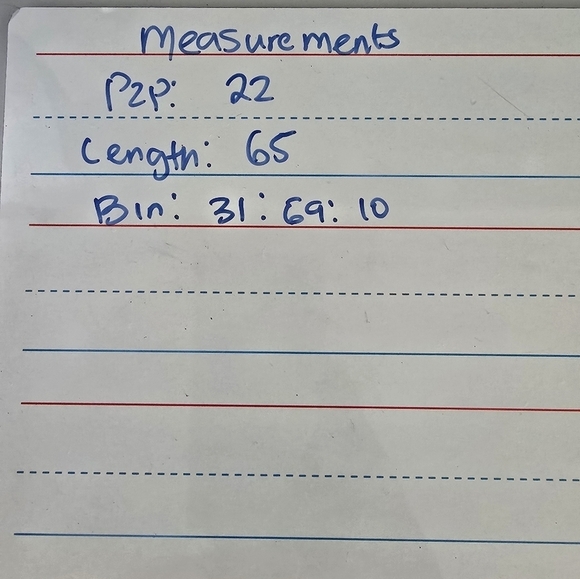 Measurements
P2P: 22
Length: 65
Bin: 31: 69: 10